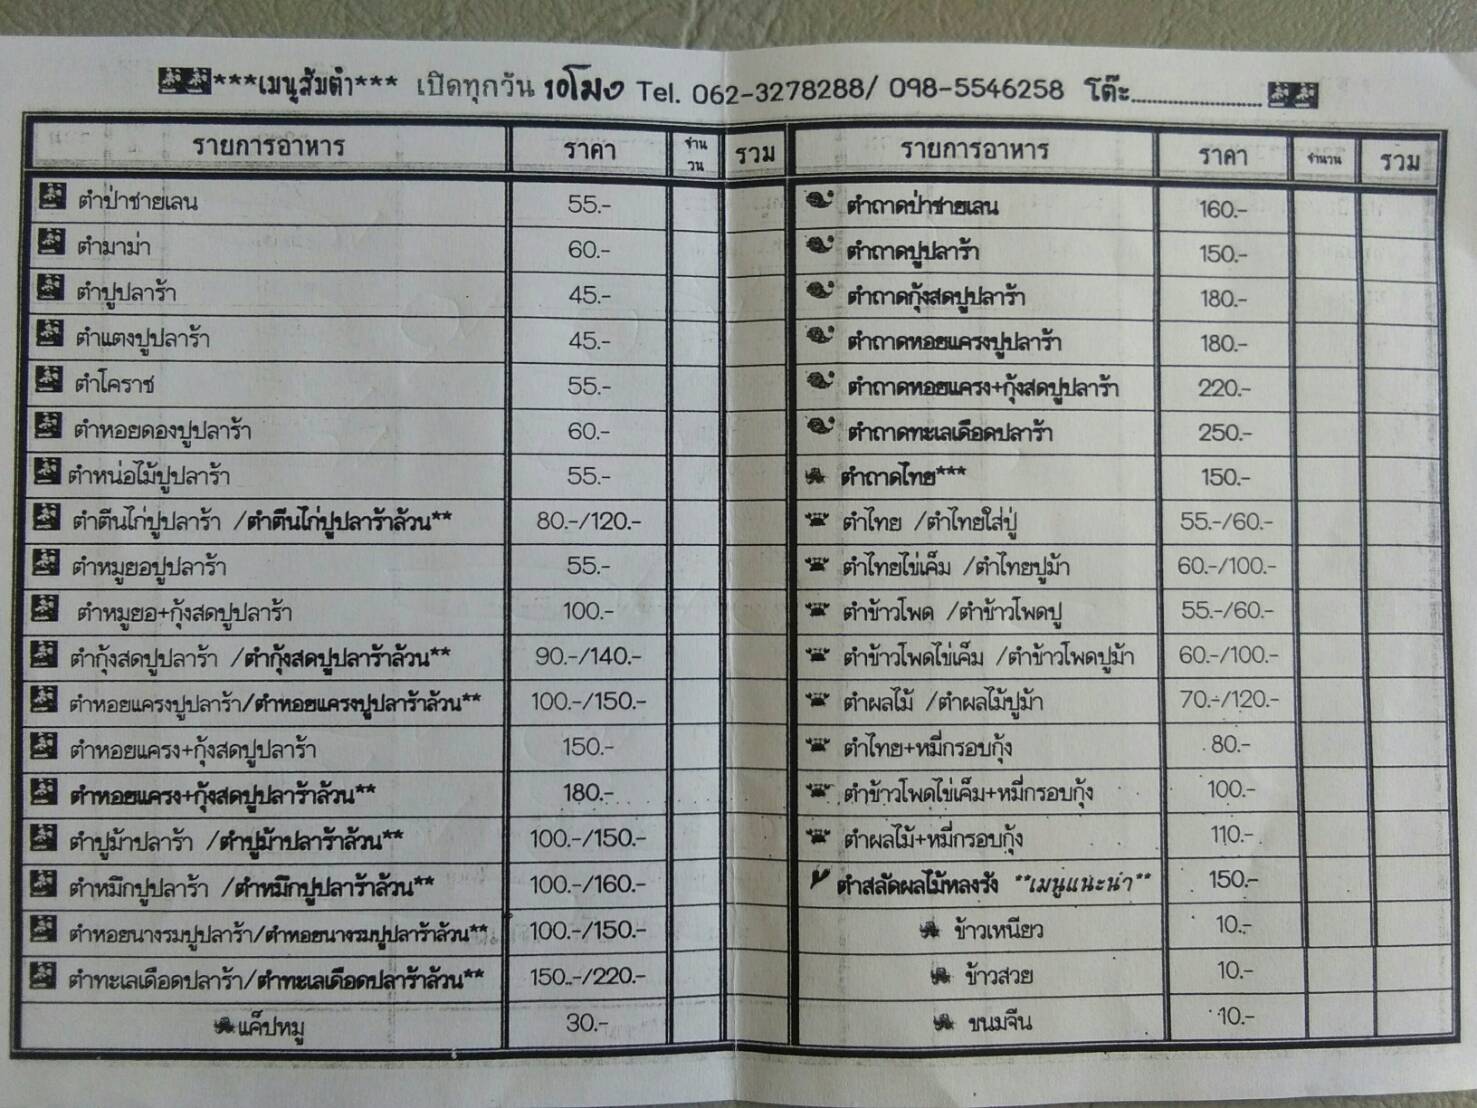 ***เมนูส้มตำ*** เปิดทุกวัน 10โมง Tel. 062-3278288/ 098-5546258 โต๊ะ..............................
รายการอาหาร ราคา จำนวน รวม
ตำป่าชายเลน 55.-
ตำมาม่า 60.-
ตำปูปลาร้า 45.-
ตำแตงปูปลาร้า 45.-
ตำโคราช 55.-
ตำหอยดองปูปลาร้า 60.-
ตำหน่อไม้ปูปลาร้า 55.-
ตำตีนไก่ปูปลาร้า /ตำตีนไก่ปูปลาร้าล้วน** 80.-/120.-
ตำหมูยอปูปลาร้า 55.-
ตำหมูยอ+กุ้งสดปูปลาร้า 100.-
ตำกุ้งสดปูปลาร้า /ตำกุ้งสดปูปลาร้าล้วน** 90.-/140.-
ตำหอยแครงปูปลาร้า/ตำหอยแครงปูปลาร้าล้วน** 100.-/150.-
ตำหอยแครง+กุ้งสดปูปลาร้า 150.-
ตำหอยแครง+กุ้งสดปูปลาร้าล้วน** 180.-
ตำปูม้าปลาร้า /ตำปูม้าปลาร้าล้วน** 100.-/150.-
ตำหมึกปูปลาร้า /ตำหมึกปูปลาร้าล้วน** 100.-/160.-
ตำหอยนางรมปูปลาร้า/ตำหอยนางรมปูปลาร้าล้วน** 100.-/150.-
ตำทะเลเดือดปลาร้า/ตำทะเลเดือดปลาร้าล้วน** 150.-/220.-
แค็ปหมู 30.-
รายการอาหาร ราคา จำนวน รวม
ตำถาดป่าชายเลน 160.-
ตำถาดปูปลาร้า 150.-
ตำถาดกุ้งสดปูปลาร้า 180.-
ตำถาดหอยแครงปูปลาร้า 180.-
ตำถาดหอยแครง+กุ้งสดปูปลาร้า 220.-
ตำถาดทะเลเดือดปลาร้า 250.-
ตำถาดไทย*** 150.-
ตำไทย /ตำไทยใส่ปู่ 55.-/60.-
ตำไทยไข่เค็ม /ตำไทยปูม้า 60.-/100.-
ตำข้าวโพด /ตำข้าวโพดปู 55.-/60.-
ตำข้าวโพดไข่เค็ม /ตำข้าวโพดปูม้า 60.-/100.-
ตำผลไม้ /ตำผลไม้ปูม้า 70.-/120.-
ตำไทย+หมี่กรอบกุ้ง 80.-
ตำข้าวโพดไข่เค็ม+หมี่กรอบกุ้ง 100.-
ตำผลไม้+หมี่กรอบกุ้ง 110.-
ตำสลัดผลไม้หลงรัง **เมนูแนะนำ** 150.-
ข้าวเหนียว 10.-
ข้าวสวย 10.-
ขนมจีน 10.-